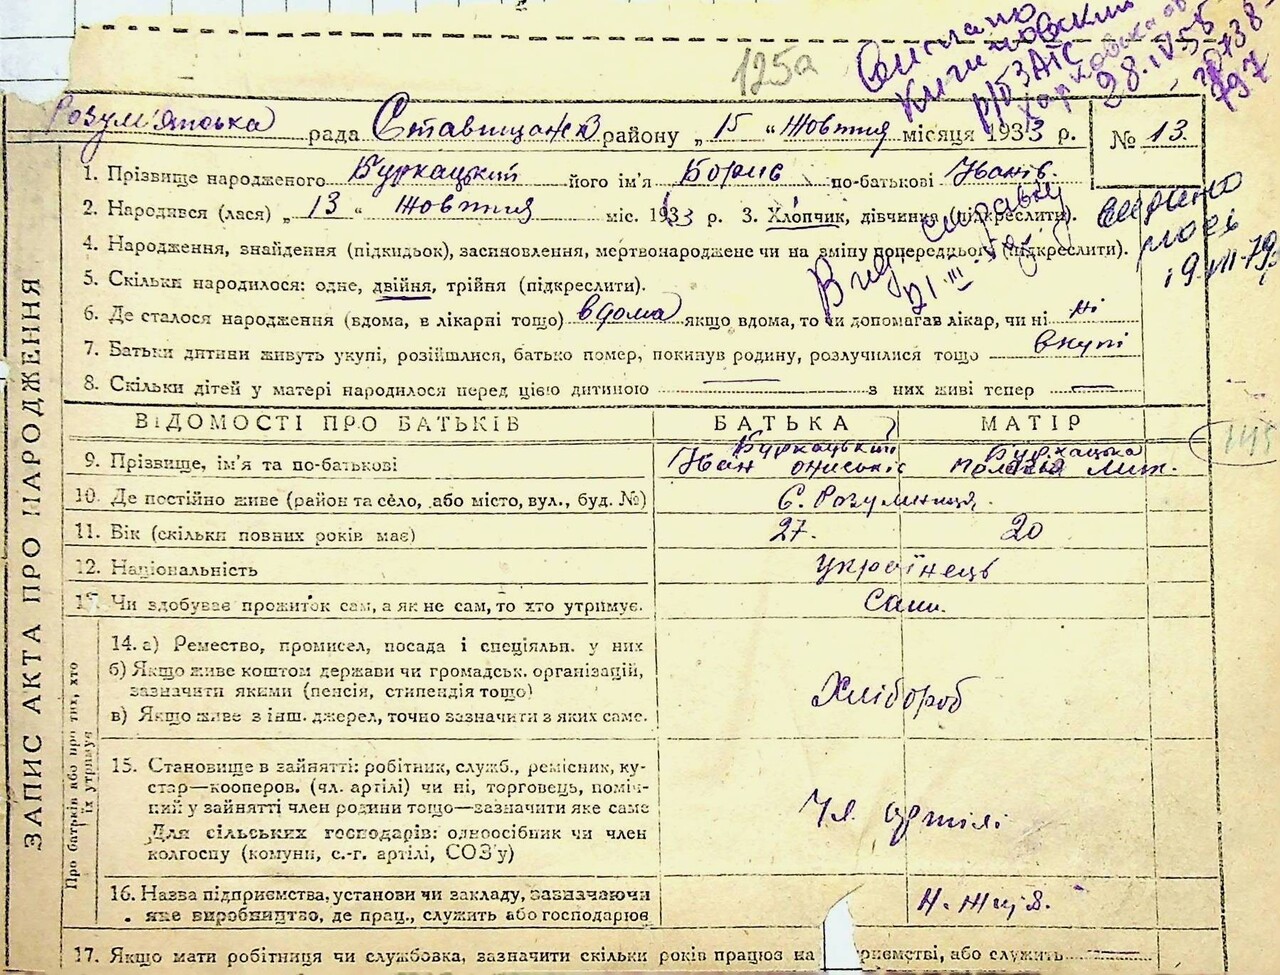 125а
28.IV 58
Розум'янська рада Ставищанськ району „ 15 “ Жовтня місяця 1933 р.
№ 13.
1. Прізвище народженого Буркацький його ім'я Борис по-батькові Іванів.
2. Народився (лася) „ 13 “ Жовтня міс. 1933 р. 3. Хлопчик, дівчинка (підкреслити).
4. Народження, знайдення (підкидьок), засиновлення, мертвонароджене чи на зміну попереднього (підкреслити).
5. Скільки народилося: одне, двійня, трійня (підкреслити).
19.VII-79
6. Де сталося народження (вдома, в лікарні тощо) вдома якщо вдома, то чи допомагав лікар, чи ні ні
7. Батьки дитини живуть укупі, розійшлися, батько помер, покинув родину, розлучилися тощо вкупі
8. Скільки дітей у матері народилося перед цією дитиною — з них живі тепер —
ВІДОМОСТІ ПРО БАТЬКІВ БАТЬКА МАТІР
9. Прізвище, ім'я та по-батькові Буркацький Іван Буркацька
10. Де постійно живе (район та село, або місто, вул., буд. №) С. Розумниця.
11. Вік (скільки повних років має) 27. 20
12. Національність українець
13. Чи здобуває прожиток сам, а як не сам, то хто утримує. Сами.
14. а) Ремество, промисел, посада і спеціяльн. у них
б) Якщо живе коштом держави чи громадськ. організацій,
зазначити якими (пенсія, стипендія тощо)
Хлібороб
в) Якщо живе з інш. джерел, точно зазначити з яких саме.
15. Становище в зайнятті: робітник, служб., ремісник, ку-
стар—кооперов. (чл. артілі) чи ні, торговець, поміч-
ний у зайнятті член родини тощо—зазначити яке саме
Чл. артілі
Для сільських господарів: одноосібник чи член
колгоспу (комуни, с.-г. артілі, СОЗ'у)
16. Назва підприємства, установи чи закладу, зазначаючи
яке виробництво, де прац., служить або господарює
17. Якщо мати робітниця чи службовка, зазначити скільки років працює на приємстві, або служить —
ЗАПИС АКТА ПРО НАРОДЖЕННЯ
Про батьків або про тих, хто
їх утримує